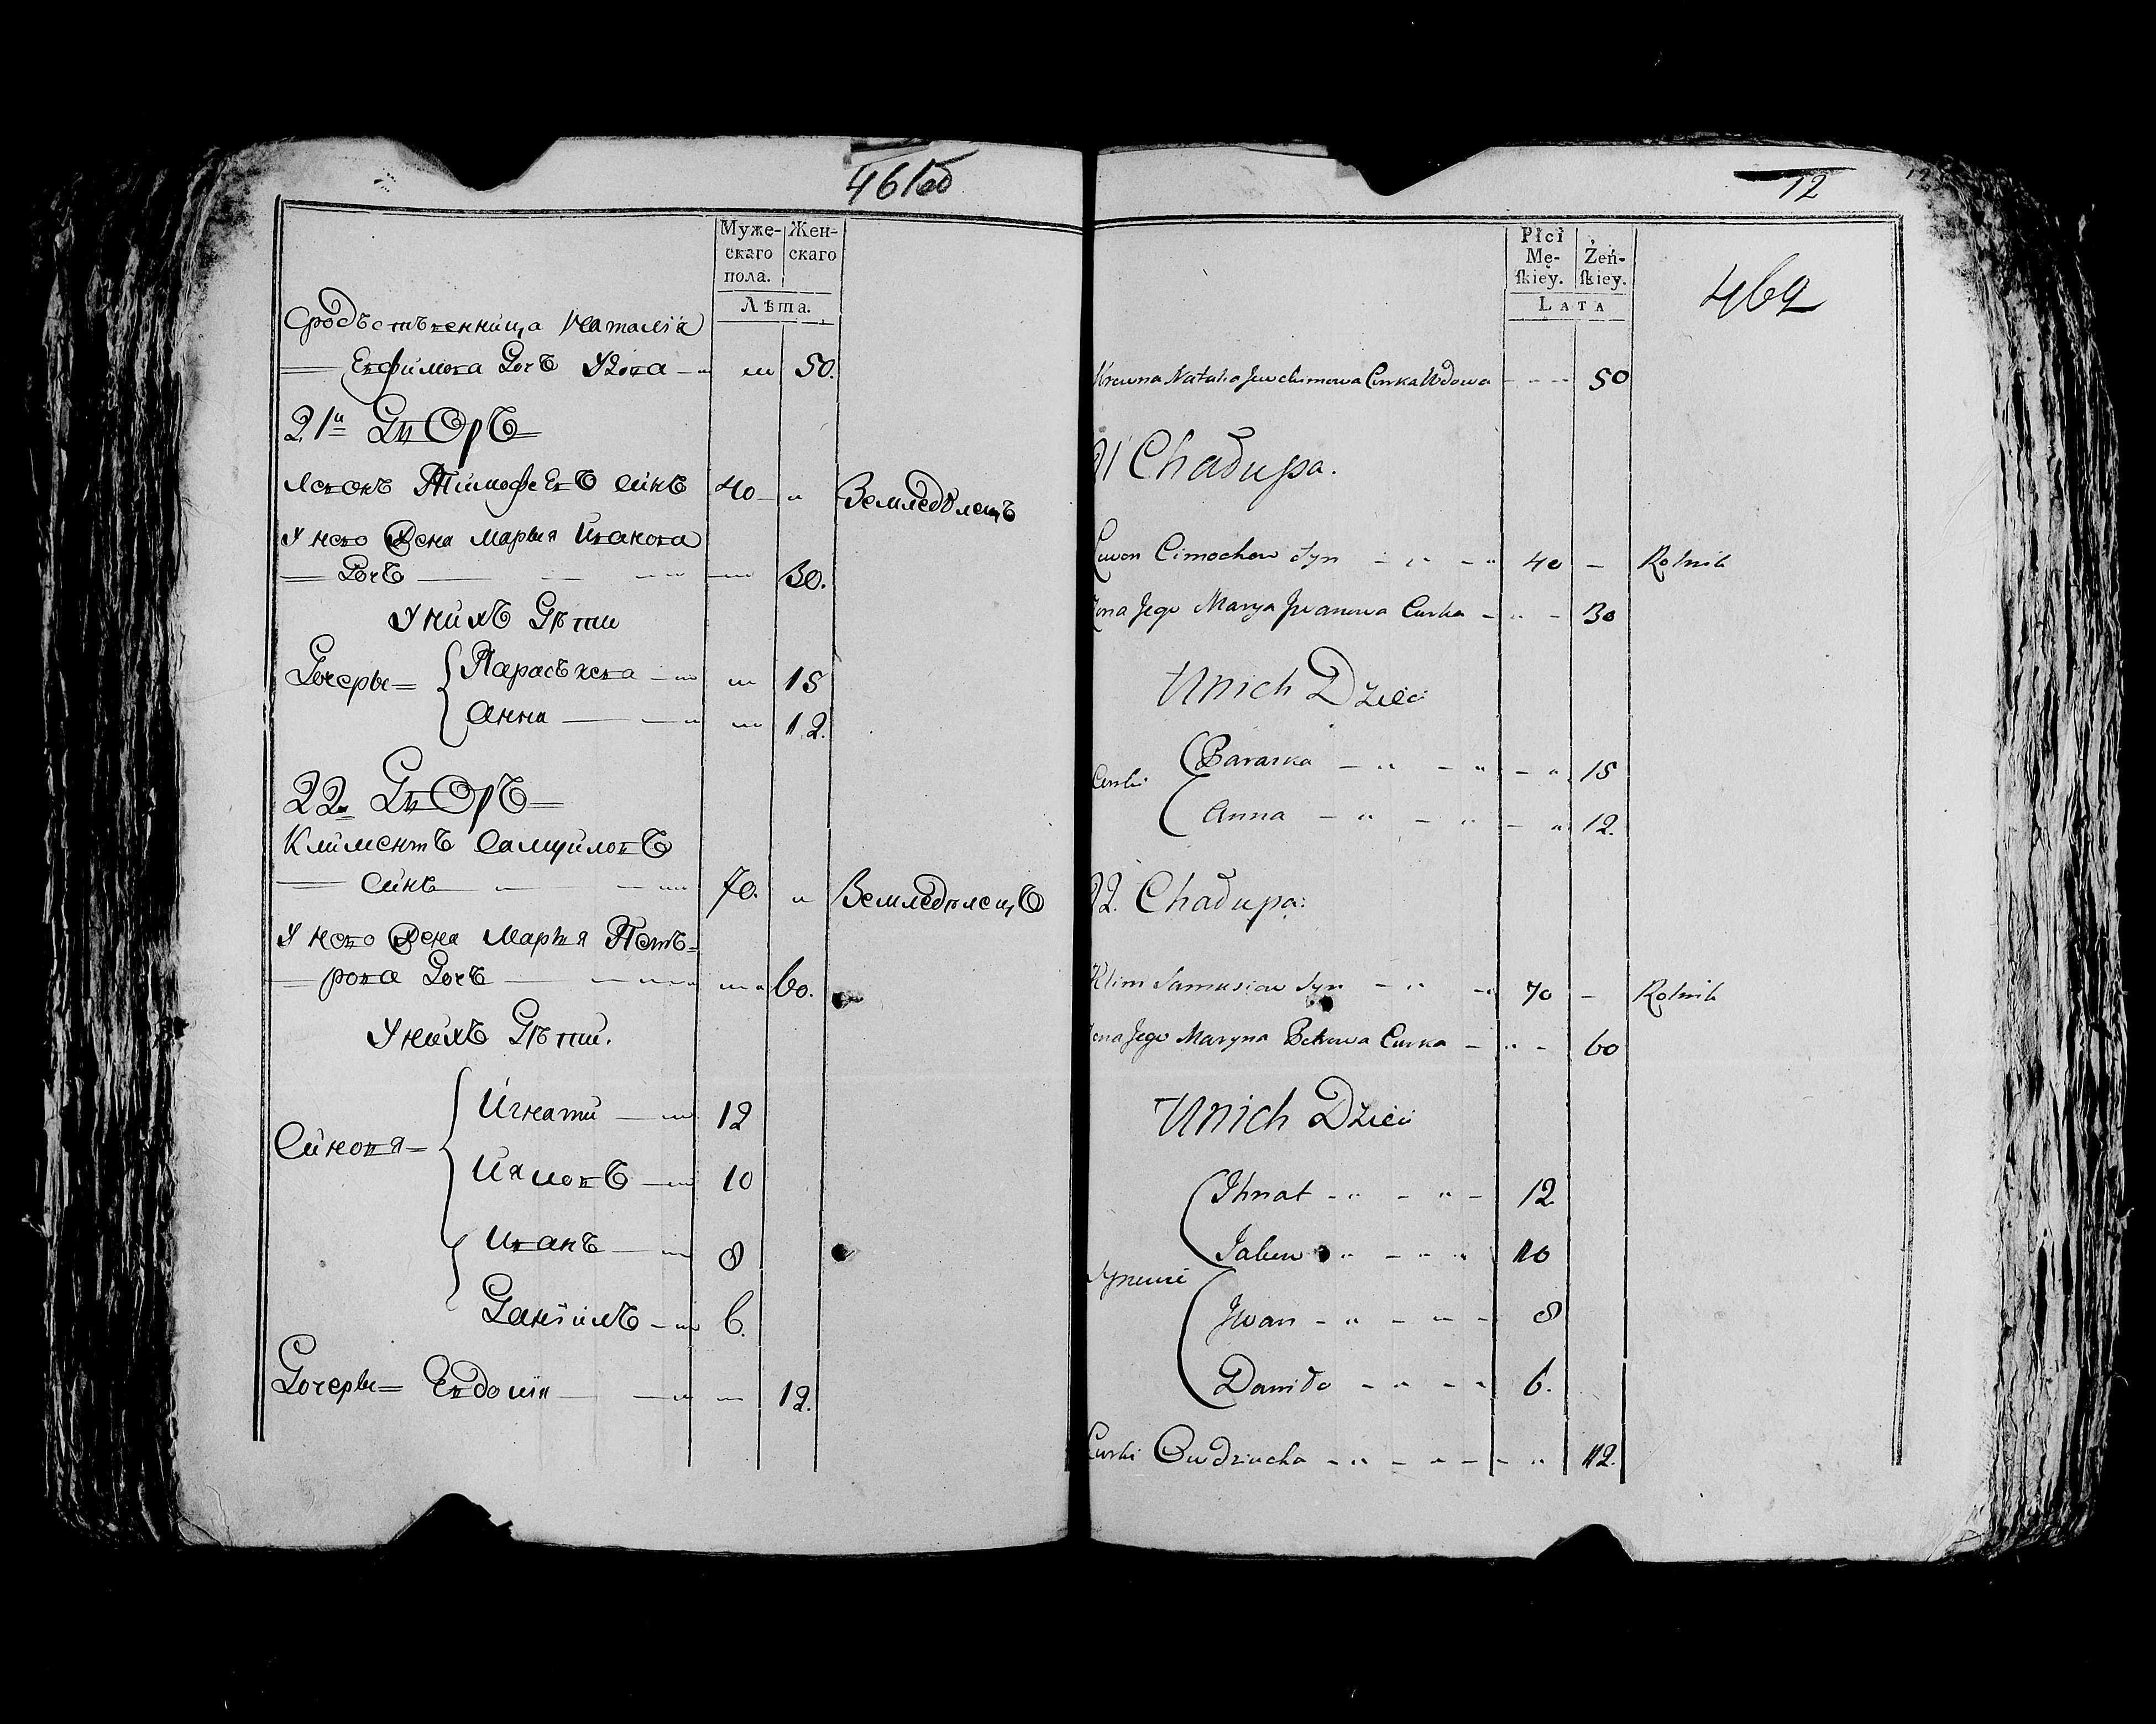 461об
Муже- Жен-
скаго скаго
пола.
Лѣта.
Сродъственница Наталіа
Евфимова Дочъ Вдова 50.
21й Дворъ
Леонъ Тимофеевъ синъ 40 Земледѣлецъ
У него Жена Марья Иванова
Дочъ 30.
У нихъ Дѣти
Дочеры Парасъкева 15
Анна 12.
22й Дворъ
Климентъ Самуиловъ
Синъ 70. Земледѣлецъ
У него Жена Марья Петъ-
рова Дочъ 60.
У нихъ Дѣти.
Синовя Игнати 12
Иякобъ 10
Иванъ 8
Данiилъ 6.
Дочеры Евдокiя 12.
12
462
Płci
Mę- Żeń-
skiey. skiey.
LATA
Krewna Natalia Jewchimowa Curka Wdowa 50
21 Chałupa.
Lewon Cimochow Syn 40 Rolnik
Żona Jego Marya Jwanowa Curka 30
U nich Dzieci
Curki Paraska 15
Anna 12.
22. Chałupa:
Klim Samusiow Syn 70 Rolnik
Żona Jego Maryna Petrowa Curka 60
U nich Dzieci
Ihnat 12
Jakuw 10
Synowie
Jwan 8
Daniło 6.
Curki Owdziucha 12.